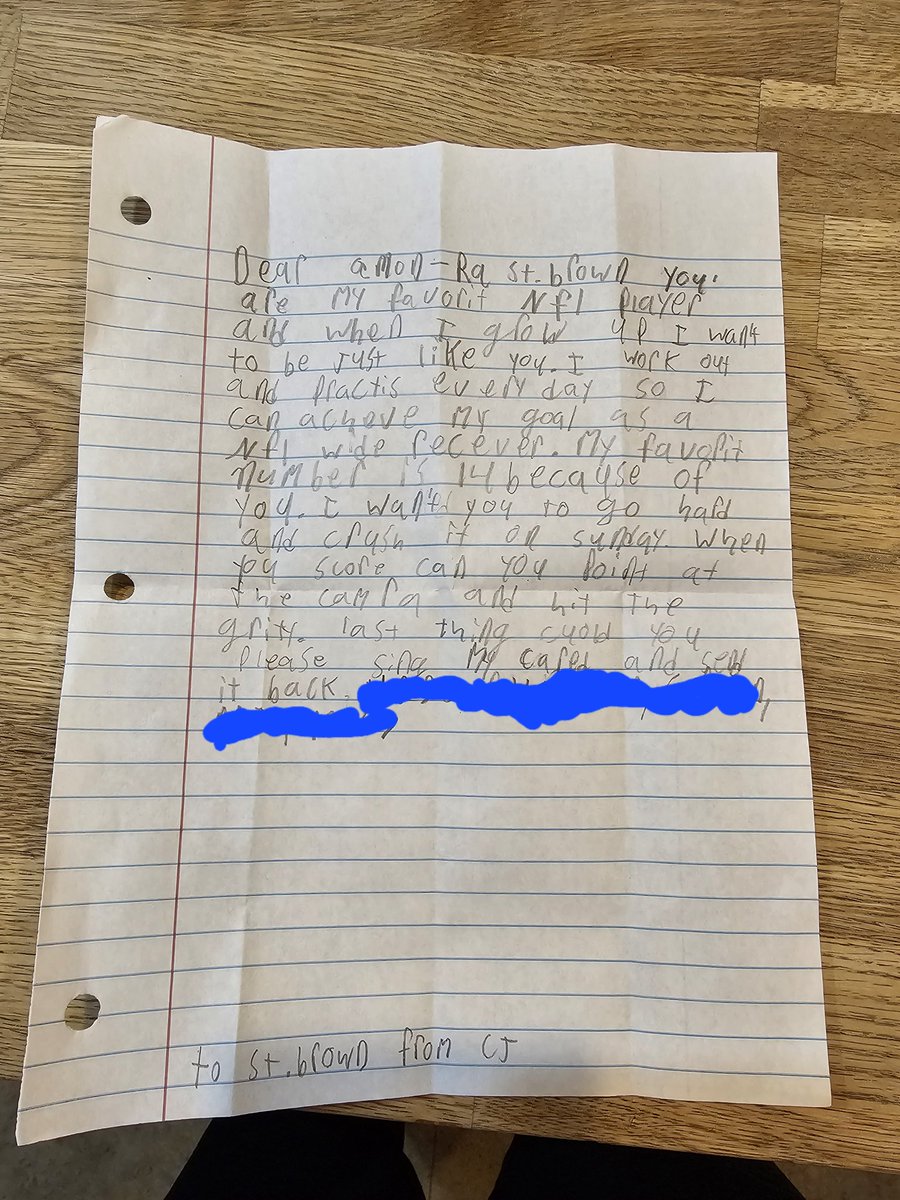 Dear amon-Ra st.brown you.
are my favorit Nfl player
and when I grow up I want
to be just like you. I work out
and practis every day so I
can acheve my goal as a
Nfl wide recever. My favorit
number is 14 because of
you. I want you to go hard
and crush it on sunday. when
you score can you point at
the camra and hit the
grity. last thing cuold you
please sing my cared and send
it back.
to st.brown from CJ